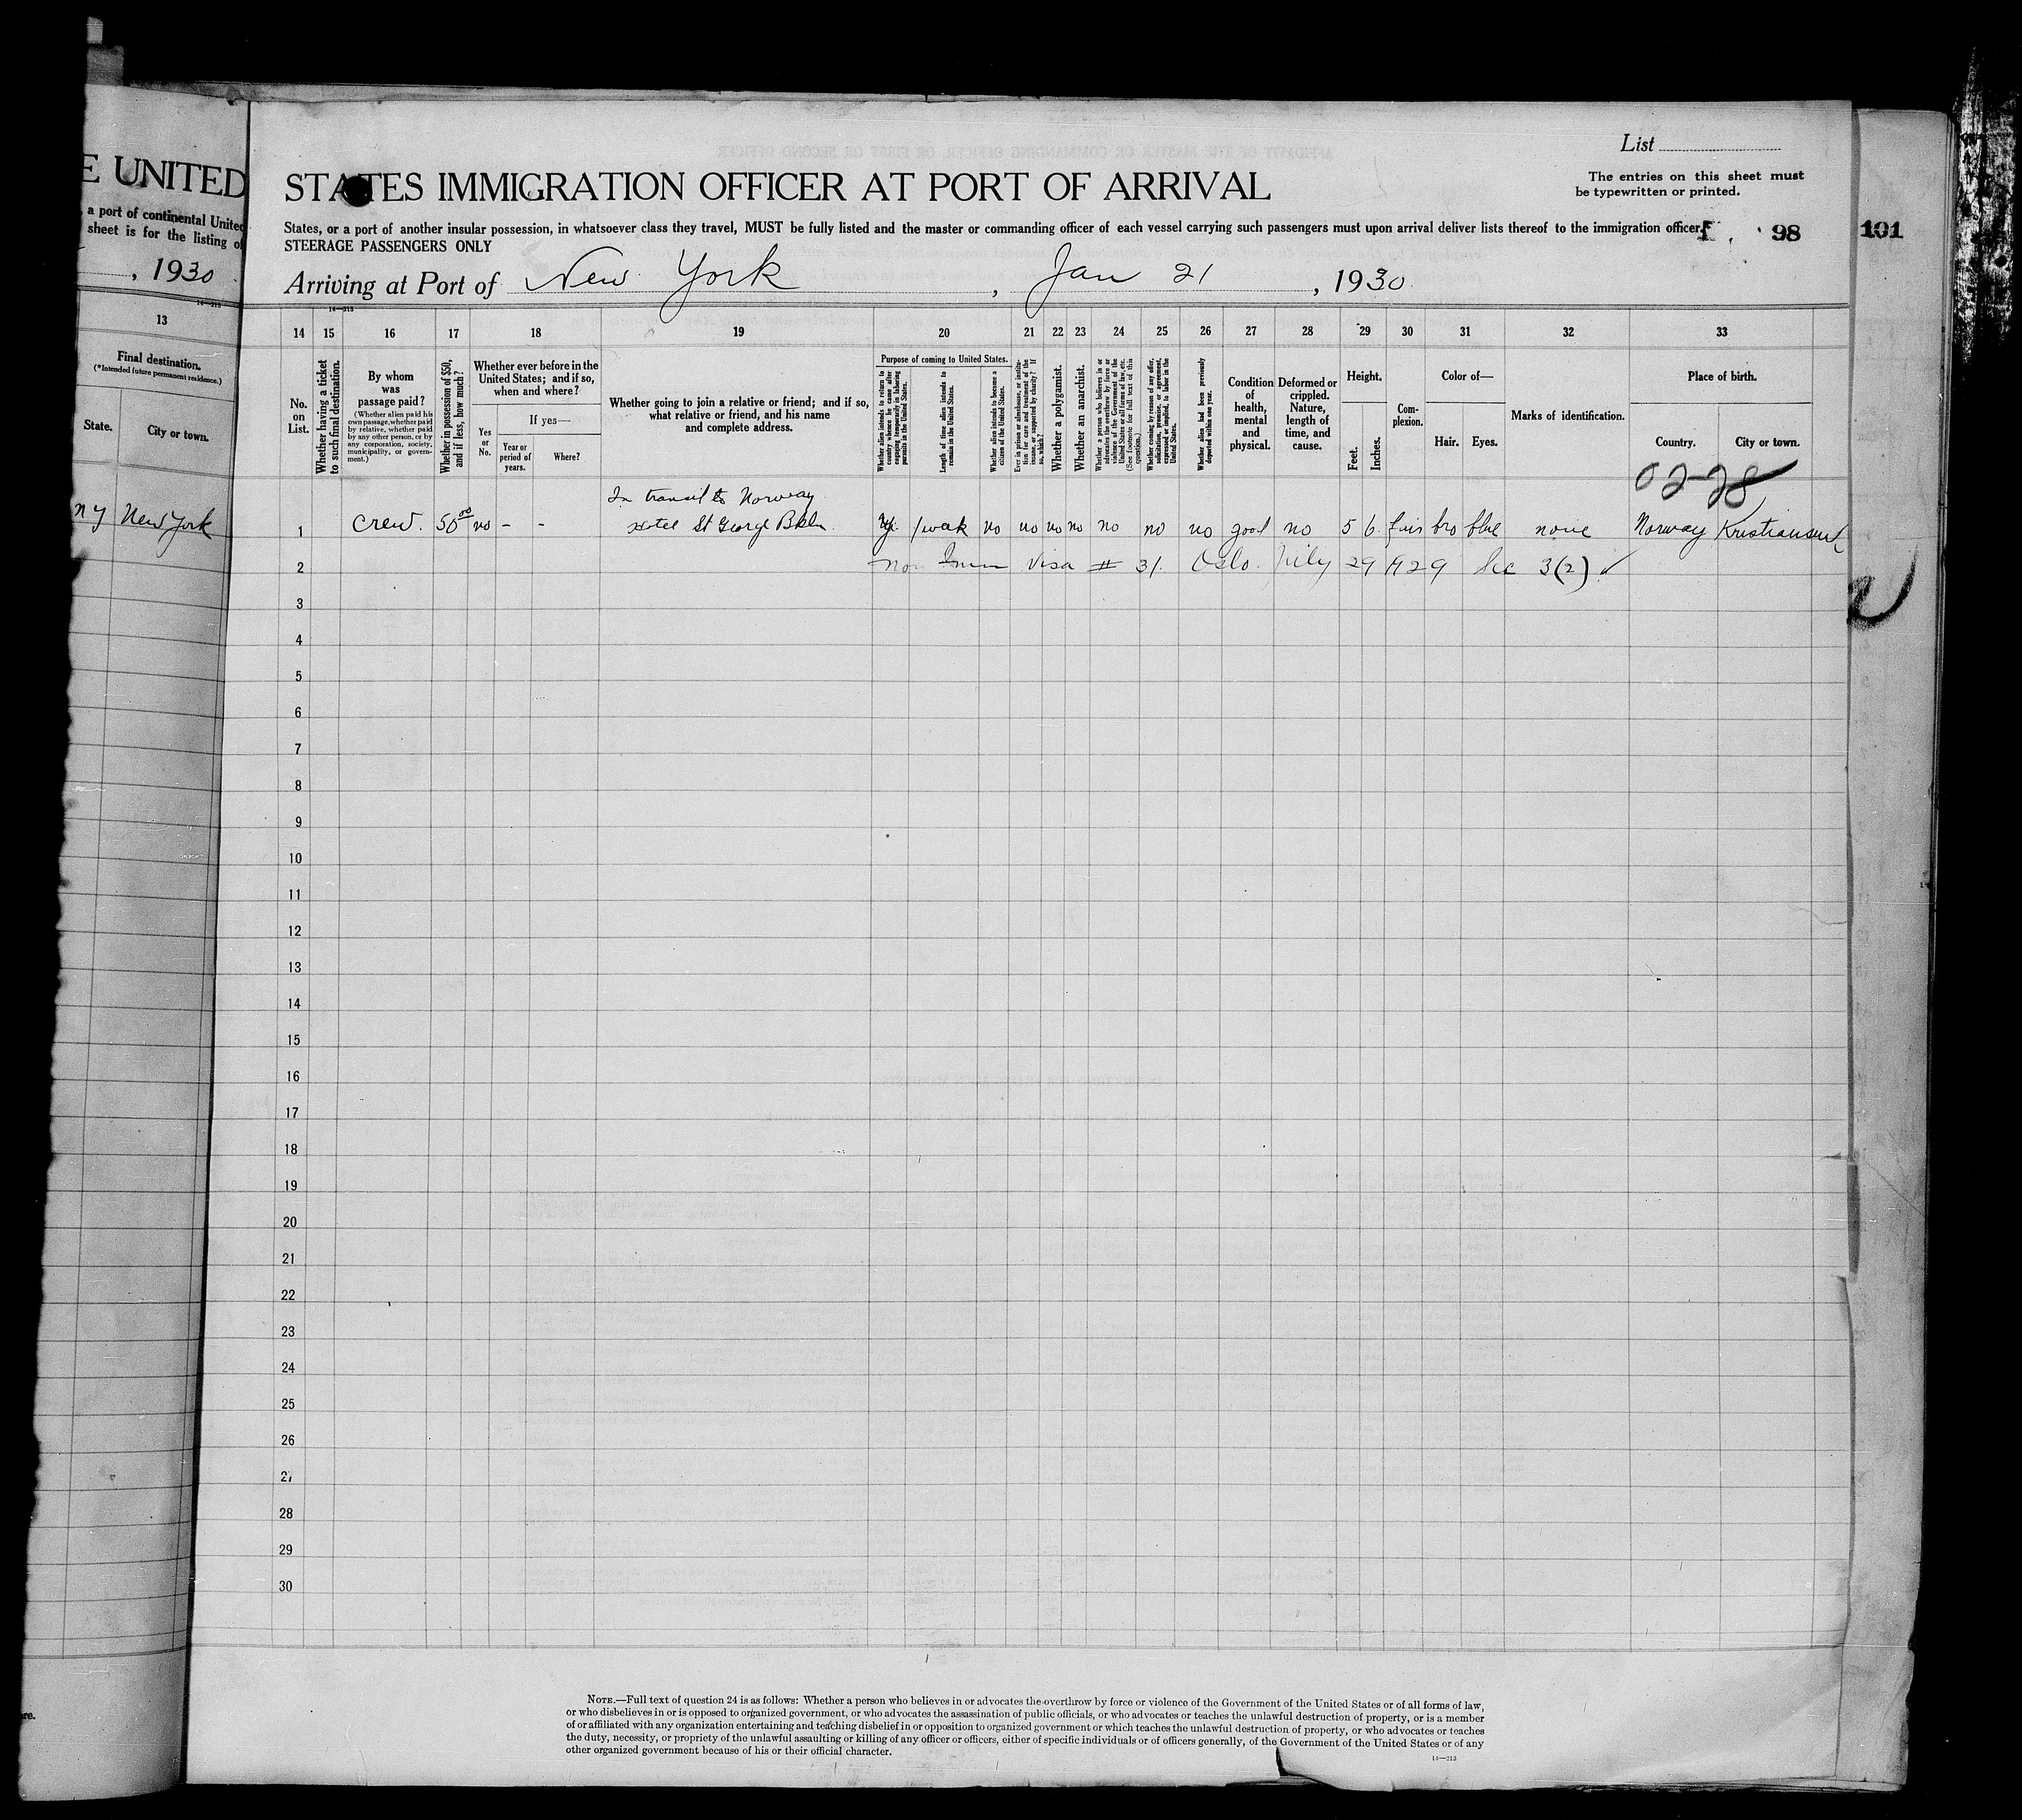 E UNITED
, a port of continental United
sheet is for the listing of
, 1930
14—213
13
Final destination.
(*Intended future permanent residence.)
State.
City or town.
N Y New York
re.
List
The entries on this sheet must
be typewritten or printed.
STATES IMMIGRATION OFFICER AT PORT OF ARRIVAL
States, or a port of another insular possession, in whatsoever class they travel, MUST be fully listed and the master or commanding officer of each vessel carrying such passengers must upon arrival deliver lists thereof to the immigration officer.
98
101
STEERAGE PASSENGERS ONLY
Arriving at Port of New York , Jan 21 , 1930
14—213
14 15 16 17 18 19 20 21 22 23 24 25 26 27 28 29 30 31 32 33
No.
on
List.
Whether having a ticket
to such final destination.
By whom
was
passage paid?
(Whether alien paid his
own passage, whether paid
by relative, whether paid
by any other person, or by
any corporation, society,
municipality, or govern-
ment.)
Whether in possession of $50,
and if less, how much?
Whether ever before in the
United States; and if so,
when and where?
Yes
or
No.
If yes—
Year or
period of
years.
Where?
Whether going to join a relative or friend; and if so,
what relative or friend, and his name
and complete address.
Purpose of coming to United States.
Whether alien intends to return to
country whence he came after
engaging temporarily in laboring
pursuits in the United States.
Length of time alien intends to
remain in the United States.
Whether alien intends to become a
citizen of the United States.
Ever in prison or almshouse, or institu-
tion for care and treatment of the
insane, or supported by charity? If
so, which?
Whether a polygamist.
Whether an anarchist.
Whether a person who believes in or
advocates the overthrow by force or
violence of the Government of the
United States or all forms of law, etc.
(See footnote for full text of this
question.)
Whether coming by reason of any offer,
solicitation, promise, or agreement,
expressed or implied, to labor in the
United States.
Whether alien had been previously
deported within one year.
Condition
of
health,
mental
and
physical.
Deformed or
crippled.
Nature,
length of
time, and
cause.
Height.
Feet.
Inches.
Com-
plexion.
Color of—
Hair. Eyes.
Marks of identification.
Place of birth.
Country. City or town.
02-28
In transit to Norway
1 crew. 50 00 no - - Hotel St George Bkln. 1 week no no no no no no no good no 5 6 fair bro blue none Norway Kristiansund
2 Non Imm Visa # 31. Oslo. July 29 1929 Sec 3(2) ✓
3
4
5
6
7
8
9
10
11
12
13
14
15
16
17
18
19
20
21
22
23
24
25
26
27
28
29
30
NOTE.—Full text of question 24 is as follows: Whether a person who believes in or advocates the overthrow by force or violence of the Government of the United States or of all forms of law,
or who disbelieves in or is opposed to organized government, or who advocates the assassination of public officials, or who advocates or teaches the unlawful destruction of property, or is a member
of or affiliated with any organization entertaining and teaching disbelief in or opposition to organized government or which teaches the unlawful destruction of property, or who advocates or teaches
the duty, necessity, or propriety of the unlawful assaulting or killing of any officer or officers, either of specific individuals or of officers generally, of the Government of the United States or of any
other organized government because of his or their official character.
14—213